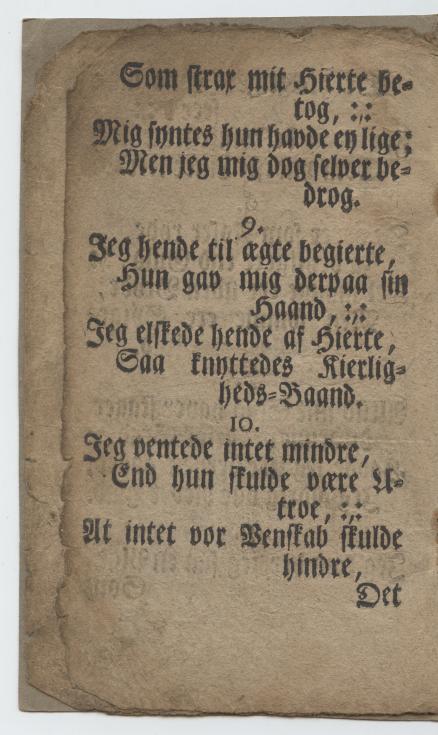 Som strax mit Hierte be-
tog, :,:
Mig syntes hun havde ey lige;
Men jeg mig dog selver be-
drog.
9.
Jeg hende til ægte begierte,
Hun gav mig derpaa sin
Haand, :,:
Jeg elskede hende af Hierte,
Saa knyttedes Kierlig-
heds-Baand.
10.
Jeg ventede intet mindre,
End hun skulde være U-
troe, :,:
At intet vor Venskab skulde
hindre,
Det